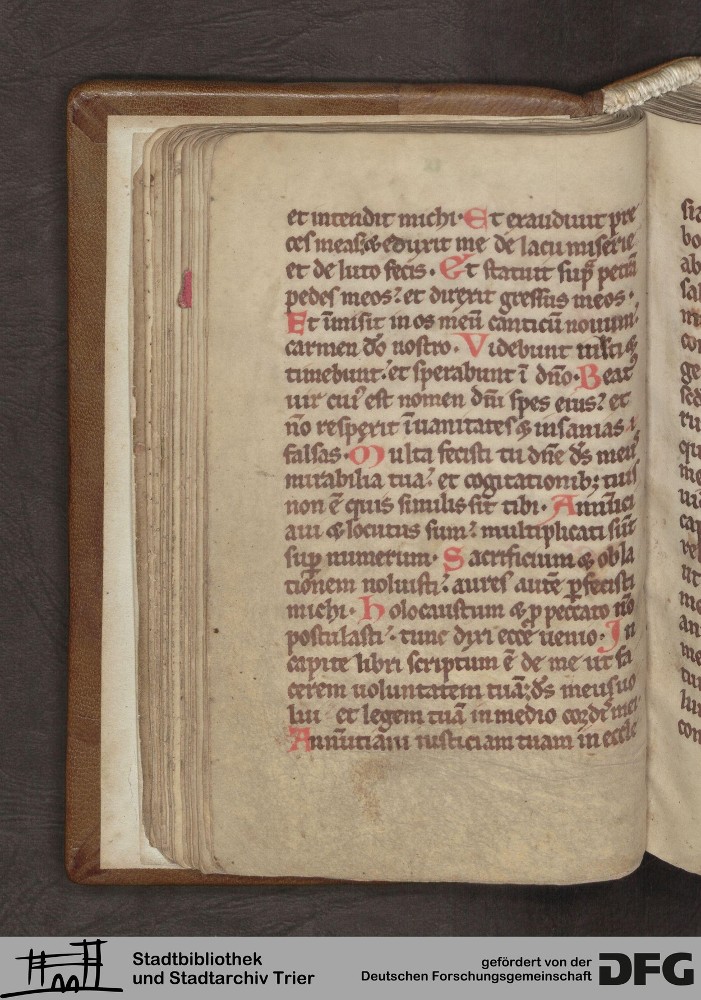 et intendit michi· Et exaudiuit pre
ces meas· & eduxit me de lacu miserie
et de luto fecis· Et statuit sup̱ petrā
pedes meos: et direxit gressus meos·
Et īmisit in os meū canticū nouum·
carmen dō nostro· Videbunt multi &
timebunt: et sperabunt ī dn̄o· Beatꝰ
uir cuiꝰ est nomen dn̄i spes eius: et
nō respexit īuanitates & insanias
falsas· Multa fecisti tu dn̄e ds̄ meus
mirabilia tua: et cogitationibꝫ tuis
non ē quis similis sit tibi· Annūci
aui & locutus sum: multiplicati sūt
sup̱ numerum· Sacrificium & obla
tiōnem noluisti: aures autē ꝑfecisti
michi· Holocaustum & ꝓ peccato nō
postulasti: tunc dyxi ecce uenio· In
capite libri scriptum ē de me ut fa
cerem uoluntatem tuā: ds̄ meus uo
lui et legem tuā in medio cordis mei
Annūtiaui iusticiam tuam in eccle
Stadtbibliothek
und Stadtarchiv Trier
gefördert von der
Deutschen Forschungsgemeinschaft
DFG